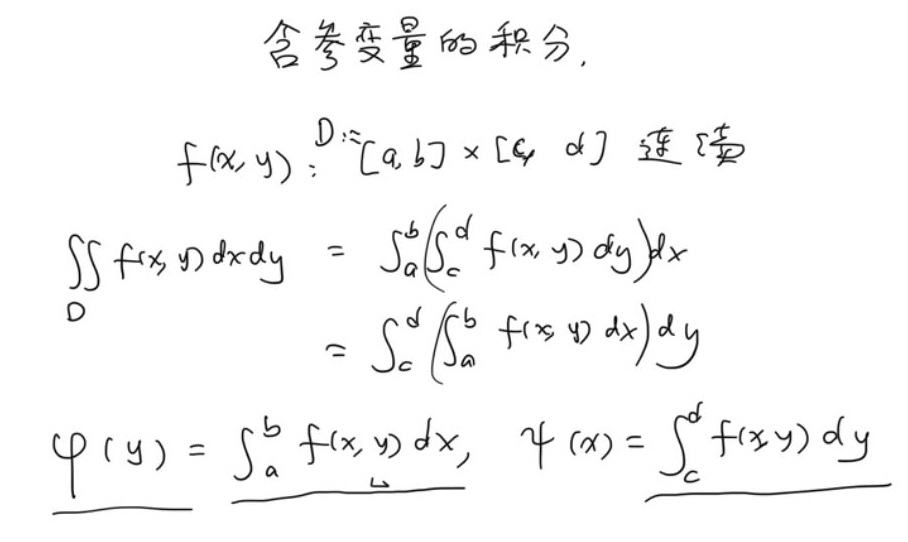 含参变量的积分.
f(x, y): D := [a, b] × [c, d] 连续
∬_D f(x, y) dx dy = ∫_a^b (∫_c^d f(x, y) dy) dx
= ∫_c^d (∫_a^b f(x, y) dx) dy
φ(y) = ∫_a^b f(x, y) dx, ψ(x) = ∫_c^d f(x, y) dy